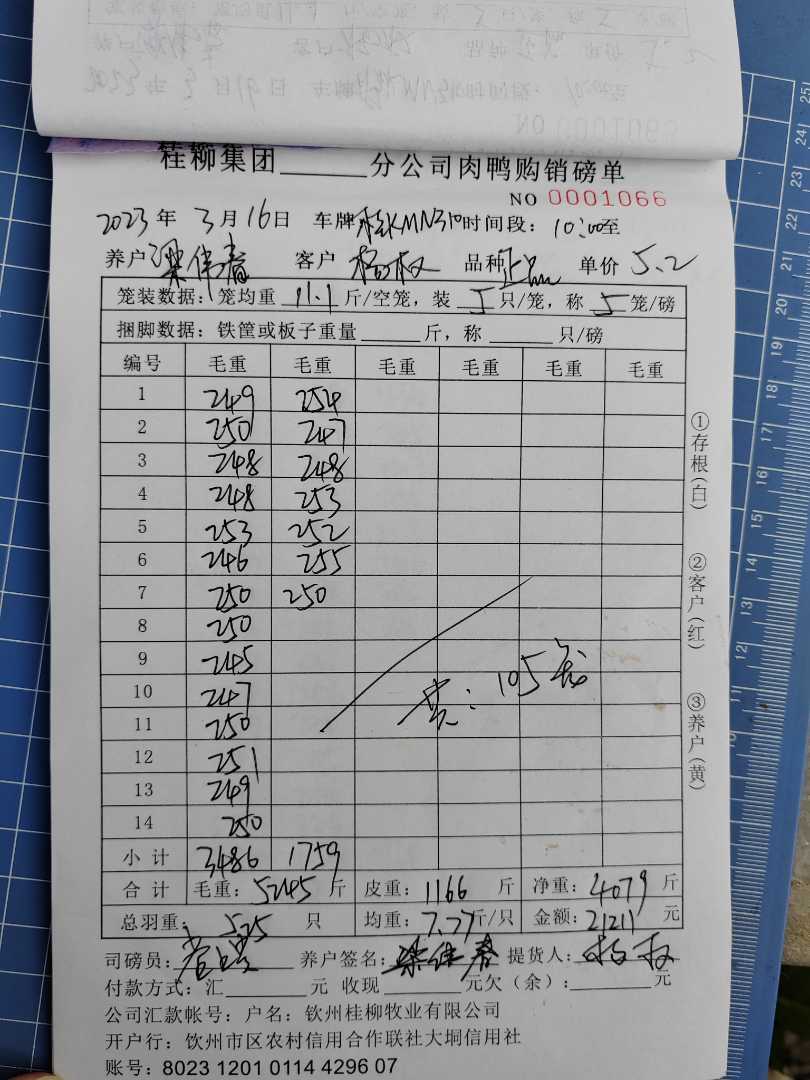 桂柳集团______分公司肉鸭购销磅单
NO 0001066
2023年 3月16日 车牌桂KMN310时间段：10:00至
养户 梁伟春 客户 杨权 品种正品 单价 5.2
笼装数据：笼均重 11.1 斤/空笼，装 5 只/笼，称 5 笼/磅
捆脚数据：铁筐或板子重量______斤，称______只/磅
编号 毛重 毛重 毛重 毛重 毛重 毛重
1 249 254
2 250 247
3 248 248
4 248 253
5 253 252
6 246 255
7 250 250
8 250
9 245
10 247
11 250
12 251
13 249
14 250
共：105笼
小计 3486 1759
合计 毛重：5245斤 皮重：1166 斤 净重：4079斤
总羽重：525 只 均重：7.77斤/只 金额：21211元
司磅员： 养户签名：梁伟春 提货人：杨权
付款方式：汇______元 收现______元欠（余）：______元
公司汇款帐号：户名：钦州桂柳牧业有限公司
开户行：钦州市区农村信用合作联社大垌信用社
账号：8023 1201 0114 4296 07
①存根(白)
②客户(红)
③养户(黄)